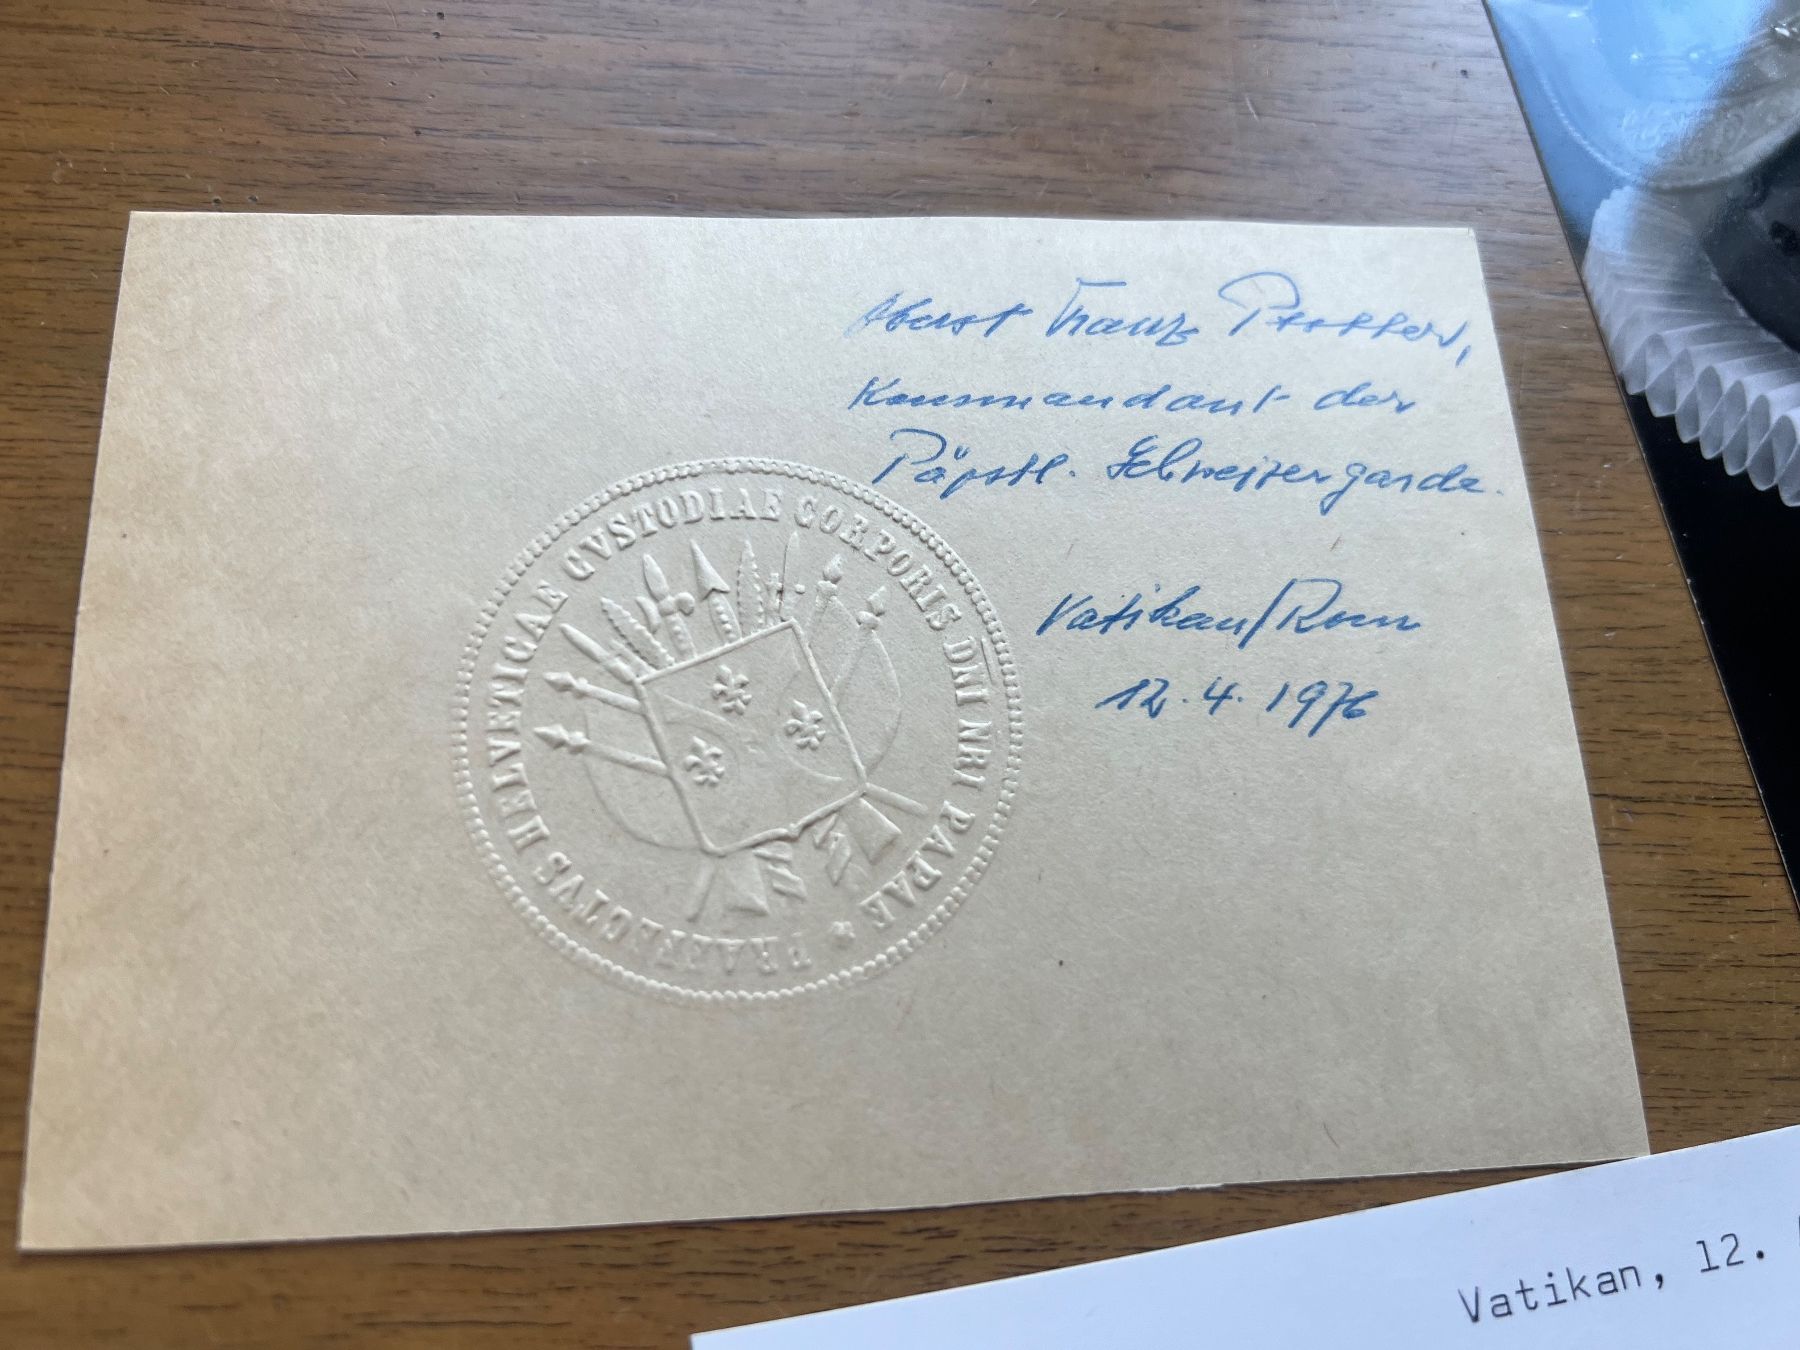 Oberst Franz Pfyffer,
Kommandant der
Päpstl. Schweizergarde.
Vatikan/Rom
12.4.1976
PRAEFECTVS HELVETICAE CVSTODIAE CORPORIS DNI NRI PAPAE *
Vatikan, 12.